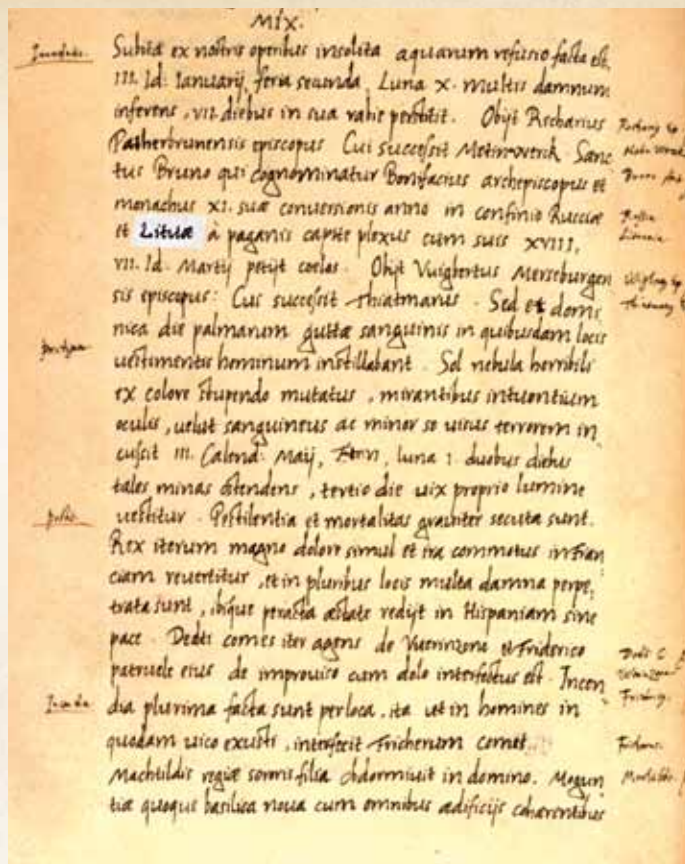 MIX.
Subita ex nostris operibus insolita aquarum refusio facta est,
III. Id. Ianuarij, feria secunda, Luna X. multis damnum
inferens, VII. diebus in sua rabie perstitit. Obijt Recharius
Patherbrunensis episcopus Cui successit Meinwerck. Sanc
tus Bruno qui cognominatur Bonifacius archepiscopus et
monachus XI. suæ conversionis anno in confinio Rusciæ
et Lituæ à paganis capite plexus cum suis XVIII,
VII. Id. Martij petijt coelos. Obijt Vuigbertus Merseburgen
sis episcopus: Cui successit Thiatmarus. Sed et domi
nica die palmarum guttæ sanguinis in quibusdam locis
uestimentis hominum instillabant. Sol nebula horribili
ex colore stupendo mutatus, mirantibus intuentium
oculis, uelut sanguineus ac minor se uisus terrorem in
cussit III. Calend: Maij, luna 1. duobus diebus
tales minas ostendens, tertio die uix proprio lumine
uestitur. Pestilentia et mortalitas grauiter secuta sunt.
Rex iterum magno dolore simul et ira commotus in Fran
ciam reuertitur, et in pluribus locis multa damna perpe,
trata sunt, ibique peracta æstate redijt in Hispaniam sine
pace. Dedti comes iter agens de Vuerinzona et Friderico
patruele eius de improuiso cum dolo interfectus est. Incen
dia plurima facta sunt per loca, ita ut in homines in
quodam uico exusti, interfecit Fricherum comet
Machtildis regiæ sororis filia obdormiuit in domino. Mogun
tiæ quoque basilica noua cum omnibus ædificijs cohærentibus